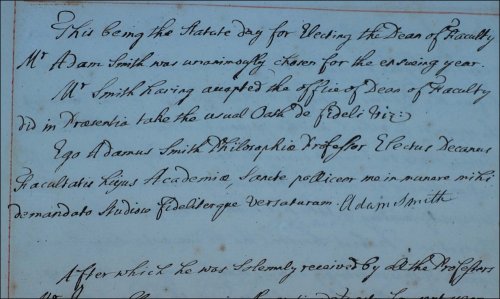 This being the Statute day for Electing the Dean of Faculty
Mr Adam Smith was unanimously chosen for the ensueing year.
Mr Smith having accepted the office of Dean of Faculty
did in Præsentia take the usual Oath de fideli viz:
Ego Adamus Smith Philosophiæ Professor Electus Decanus
Facultatis hujus Academiæ, Sancte polliceor me in munere mihi
demandato Studiose fideliterque versaturum. Adam Smith
After which he was Solemnly received by all the Professors
Mr